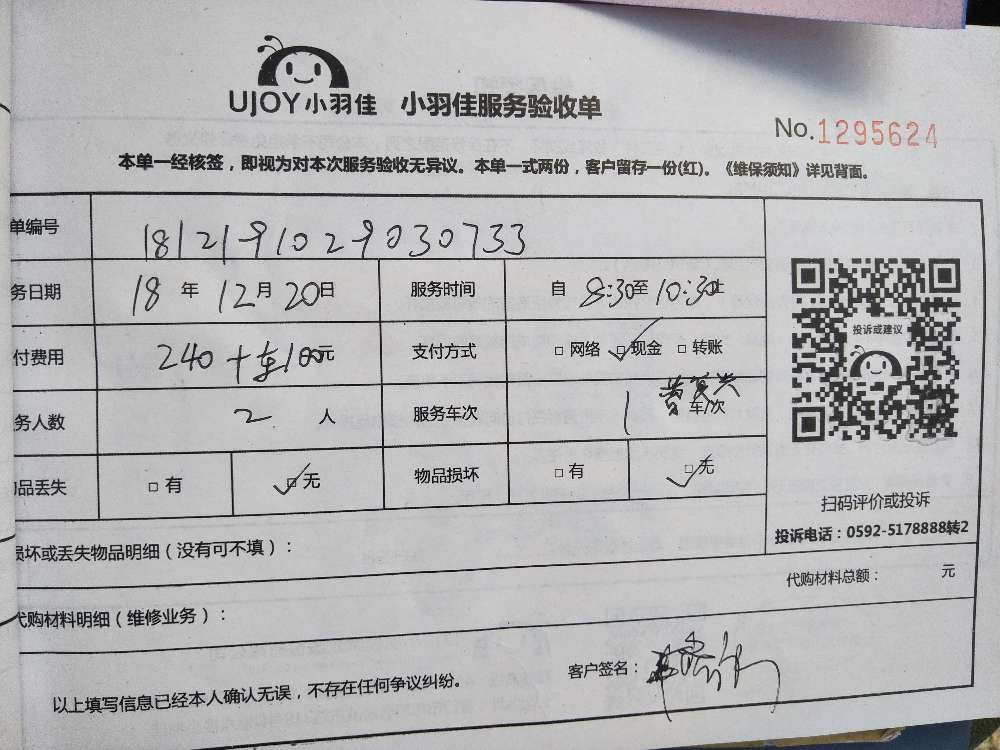 UJOY小羽佳 小羽佳服务验收单
No.1295624
本单一经核签，即视为对本次服务验收无异议。本单一式两份，客户留存一份(红)。《维保须知》详见背面。
单编号 1812191029030733
务日期 18 年 12 月 20 日 服务时间 自 8:30 至 10:30 止
付费用 240+车100元 支付方式 □网络 □现金 □转账
务人数 2 人 服务车次 1 车/次
品丢失 □有 □无 物品损坏 □有 □无
投诉或建议
扫码评价或投诉
投诉电话：0592-5178888转2
损坏或丢失物品明细（没有可不填）：
代购材料总额： 元
代购材料明细（维修业务）：
客户签名：
以上填写信息已经本人确认无误，不存在任何争议纠纷。